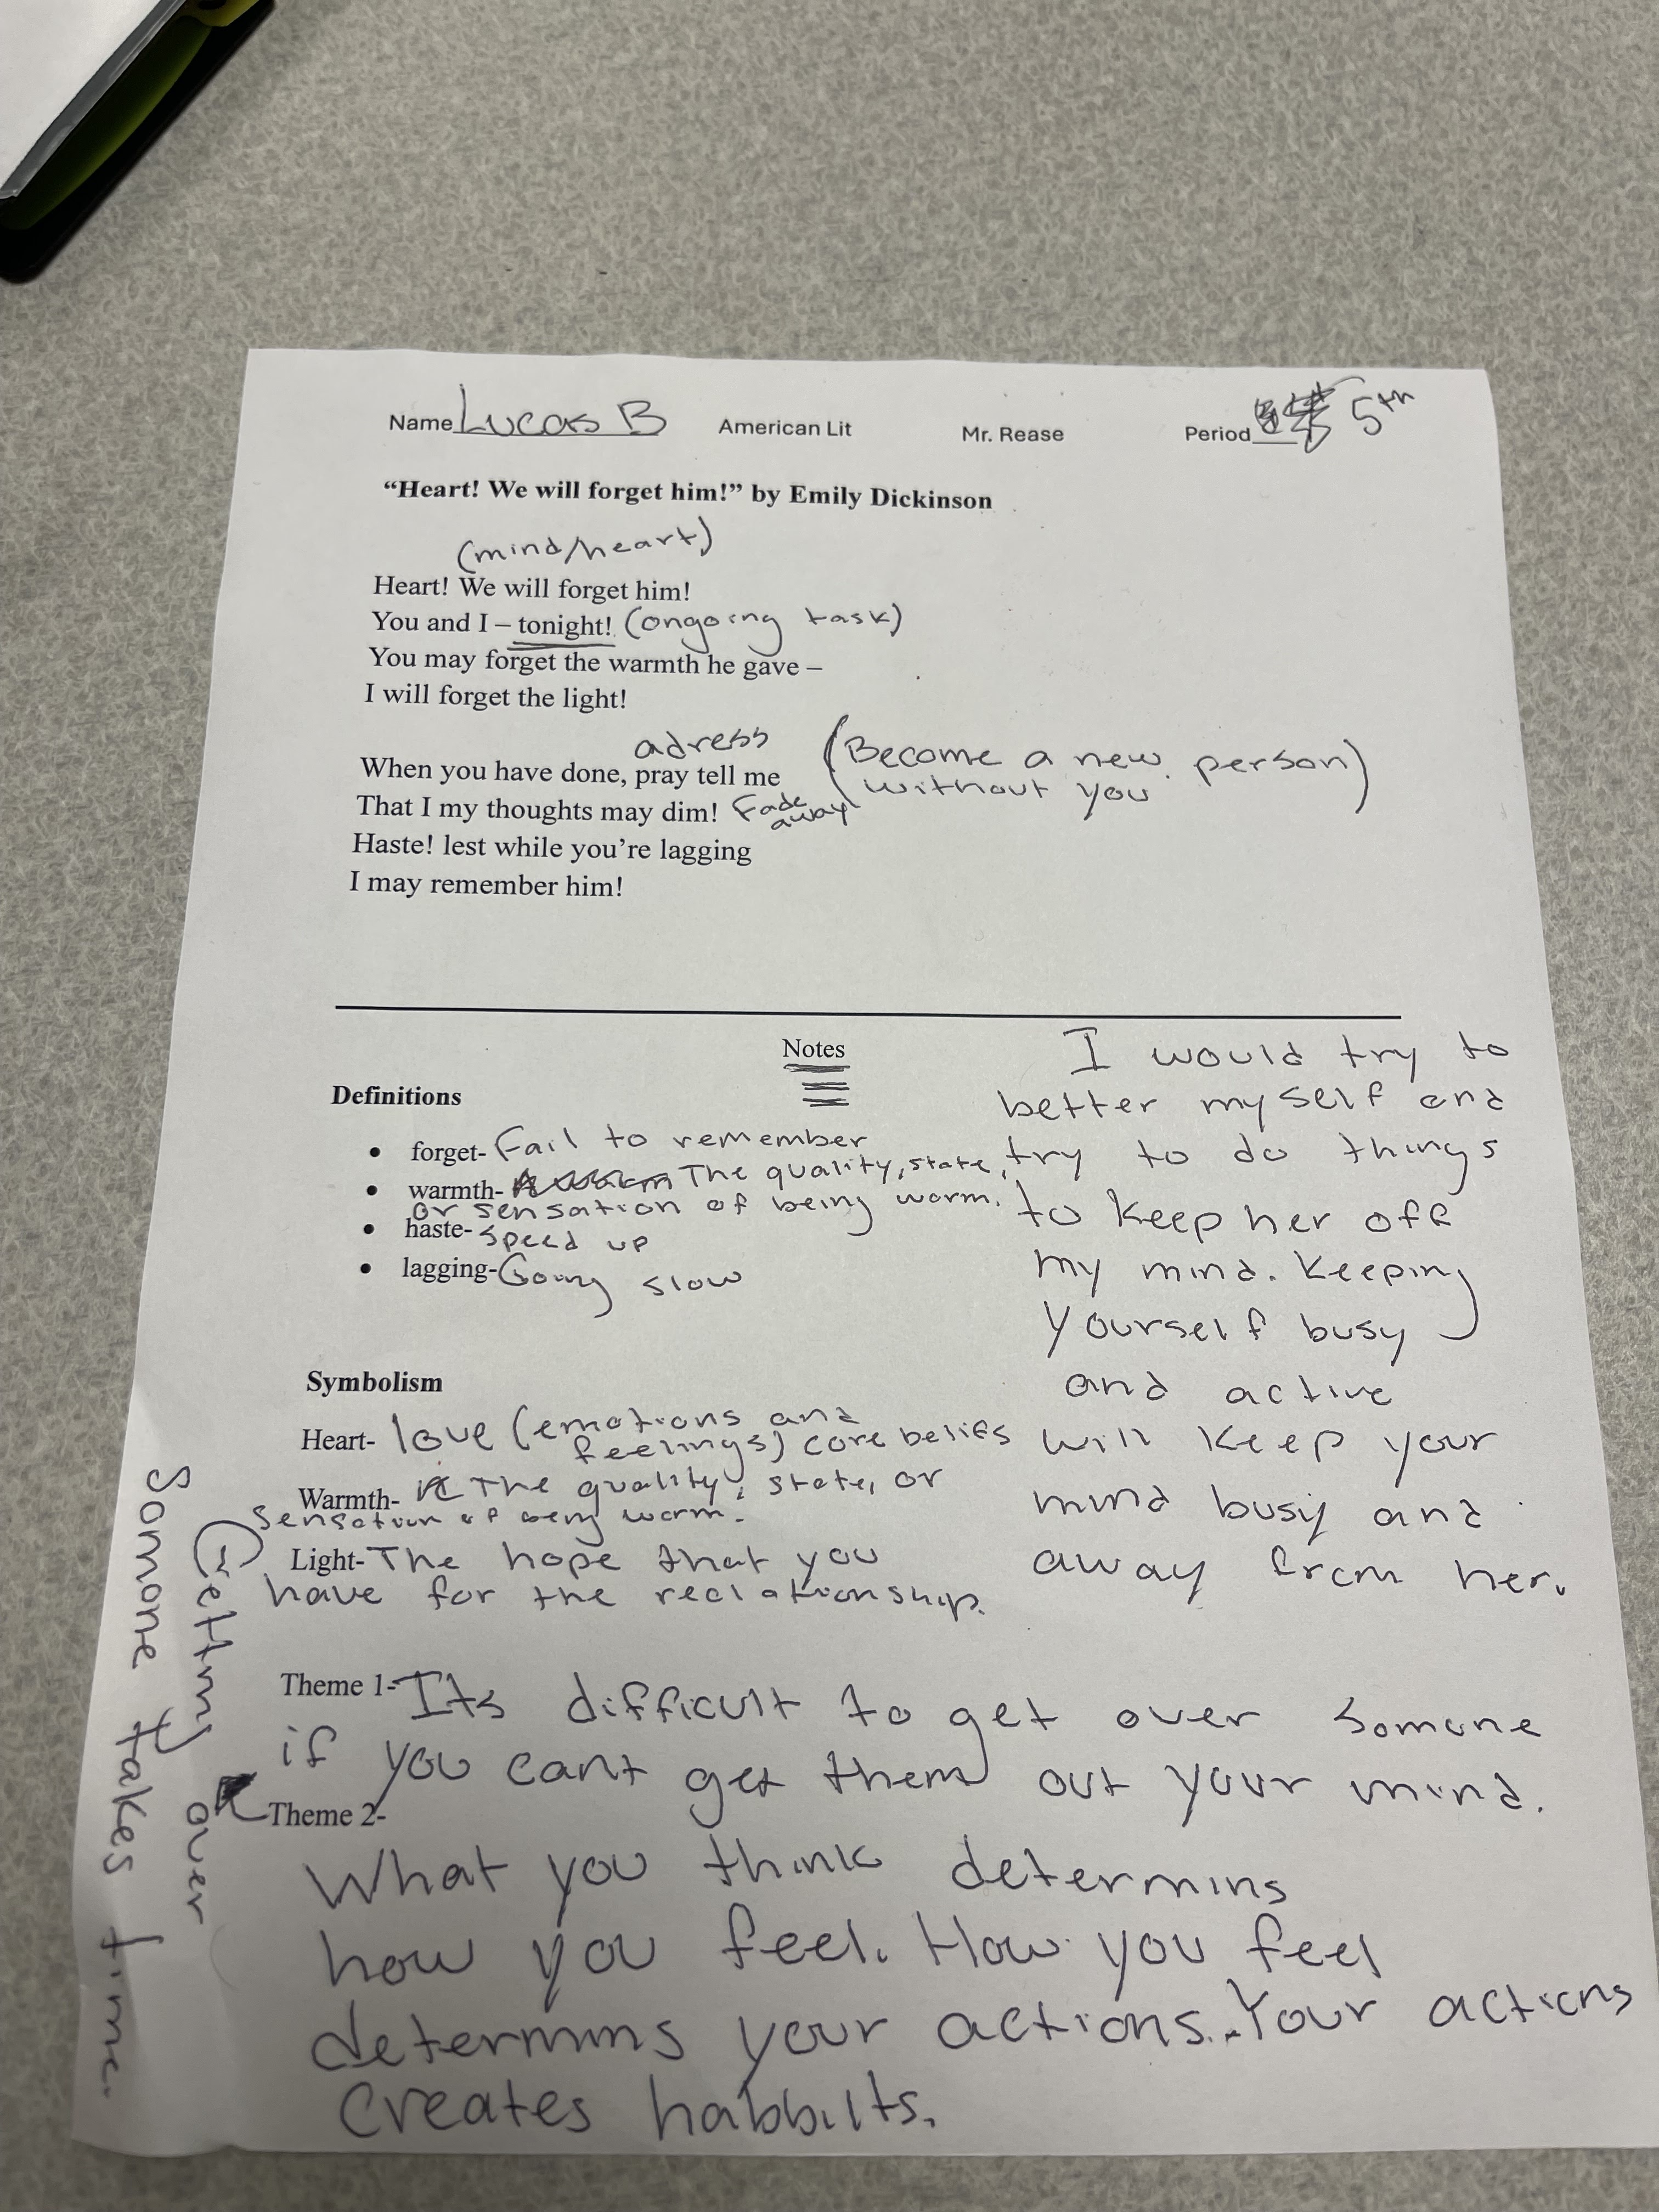 Name Lucas B American Lit Mr. Rease Period 5th
“Heart! We will forget him!” by Emily Dickinson
(mind/heart)
Heart! We will forget him!
You and I – tonight! (ongoing task)
You may forget the warmth he gave –
I will forget the light!
adress
When you have done, pray tell me
(Become a new person)
without you
That I my thoughts may dim! Fade
away
Haste! lest while you’re lagging
I may remember him!
Notes
Definitions
• forget- Fail to remember
• warmth- The quality, state,
or sensation of being warm.
• haste- speed up
• lagging- Going slow
I would try to
better my self and
try to do things
to keep her off
my mind. Keeping
yourself busy
and active
will keep your
mind busy and
away from her.
Symbolism
Heart- love (emotions and
feelings) core beliefs
Warmth- The quality, state, or
sensation of being warm.
Light- The hope that you
have for the reclationship.
Theme 1- Its difficult to get over somone
if you cant get them out your mind.
Theme 2-
Getting over
Somone takes time.
What you think determins
how you feel. How you feel
determins your actions. Your actions
creates habbilts.